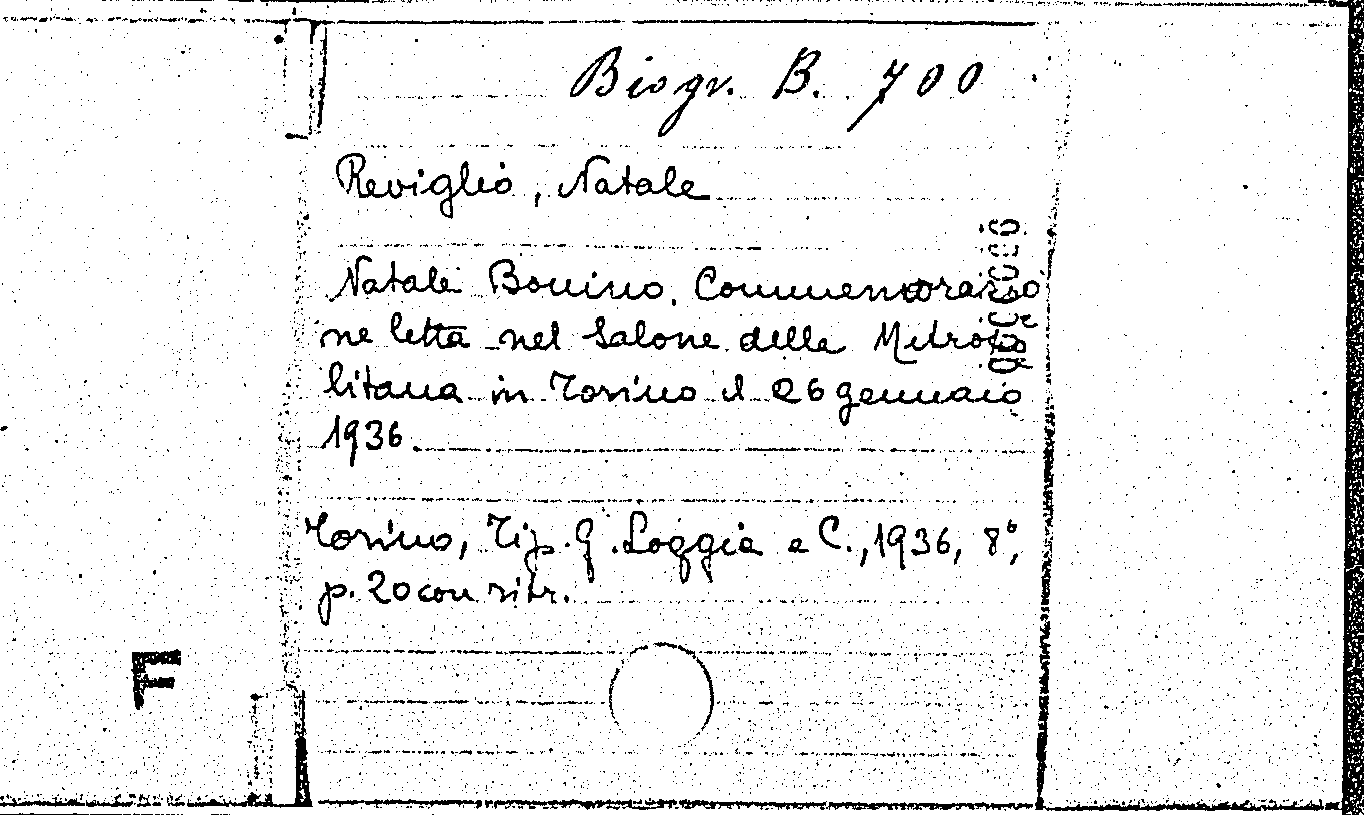 Biogr. B. 700
Reviglio, Natale
Natale Bonino. Commemorazio
ne letta nel Salone della Metropo
litana in Torino il 26 gennaio
1936.
Torino, Tip. G. Loggia e C., 1936, 8°,
p. 20 con ritr.
F